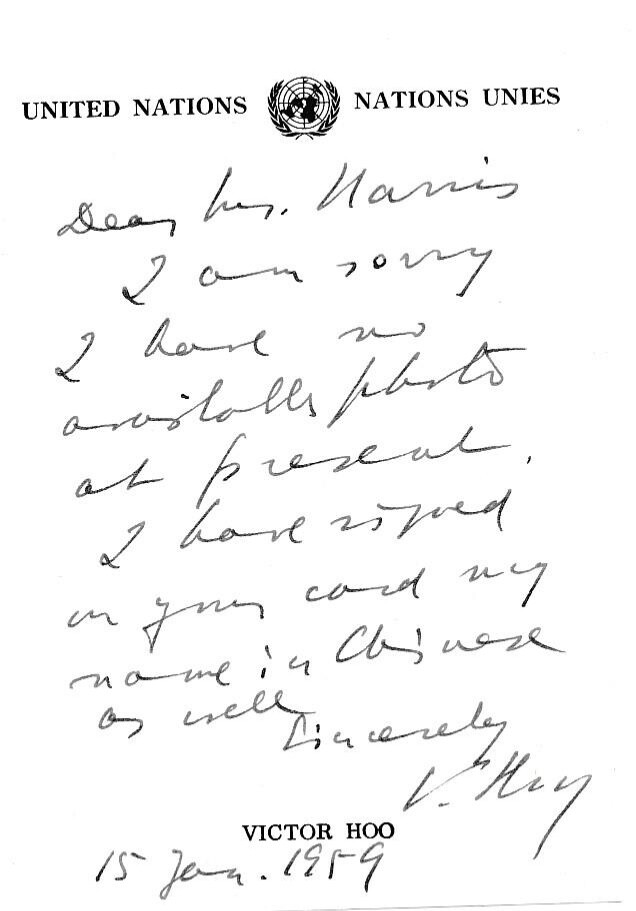 UNITED NATIONS NATIONS UNIES
Dear Mrs. Harris
I am sorry
I have no
available photo
at present.
I have signed
on your card my
name in Chinese
as well
Sincerely
V. Hoo
VICTOR HOO
15 Jan. 1959